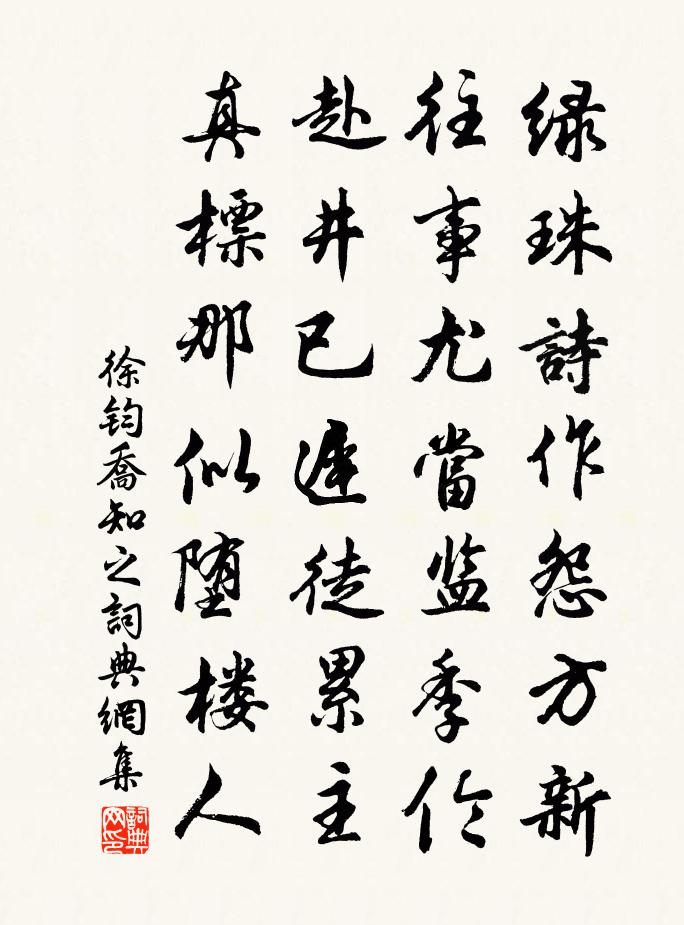 绿珠詩作怨方新
往事尤當监季伦
赴井已遲徒累主
真標那似堕楼人
徐钧喬知之詞典網集
詞典网印